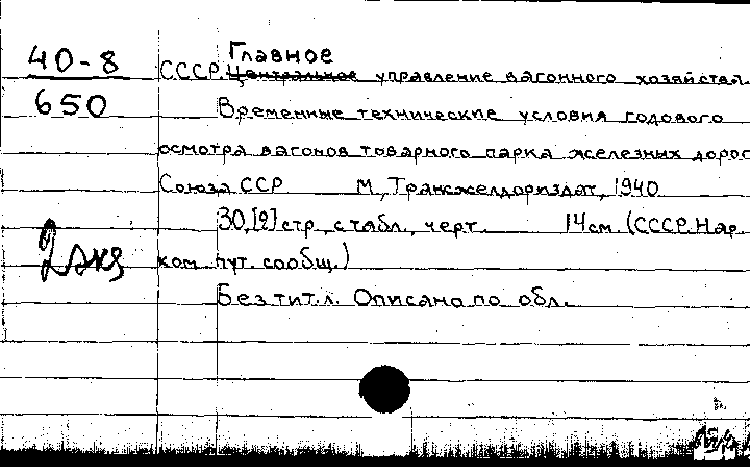 40-8
Главное
СССР. Центральное управление вагонного хозяйства.
650
Временные технические условия годового
осмотра вагонов товарного парка железных дорог
Союза ССР М., Трансжелдориздат, 1940
30,[2] стр., с табл., черт. 14 см. (СССР. Нар.
2 экз
ком. пут. сообщ.)
Без тит. л. Описано по обл.